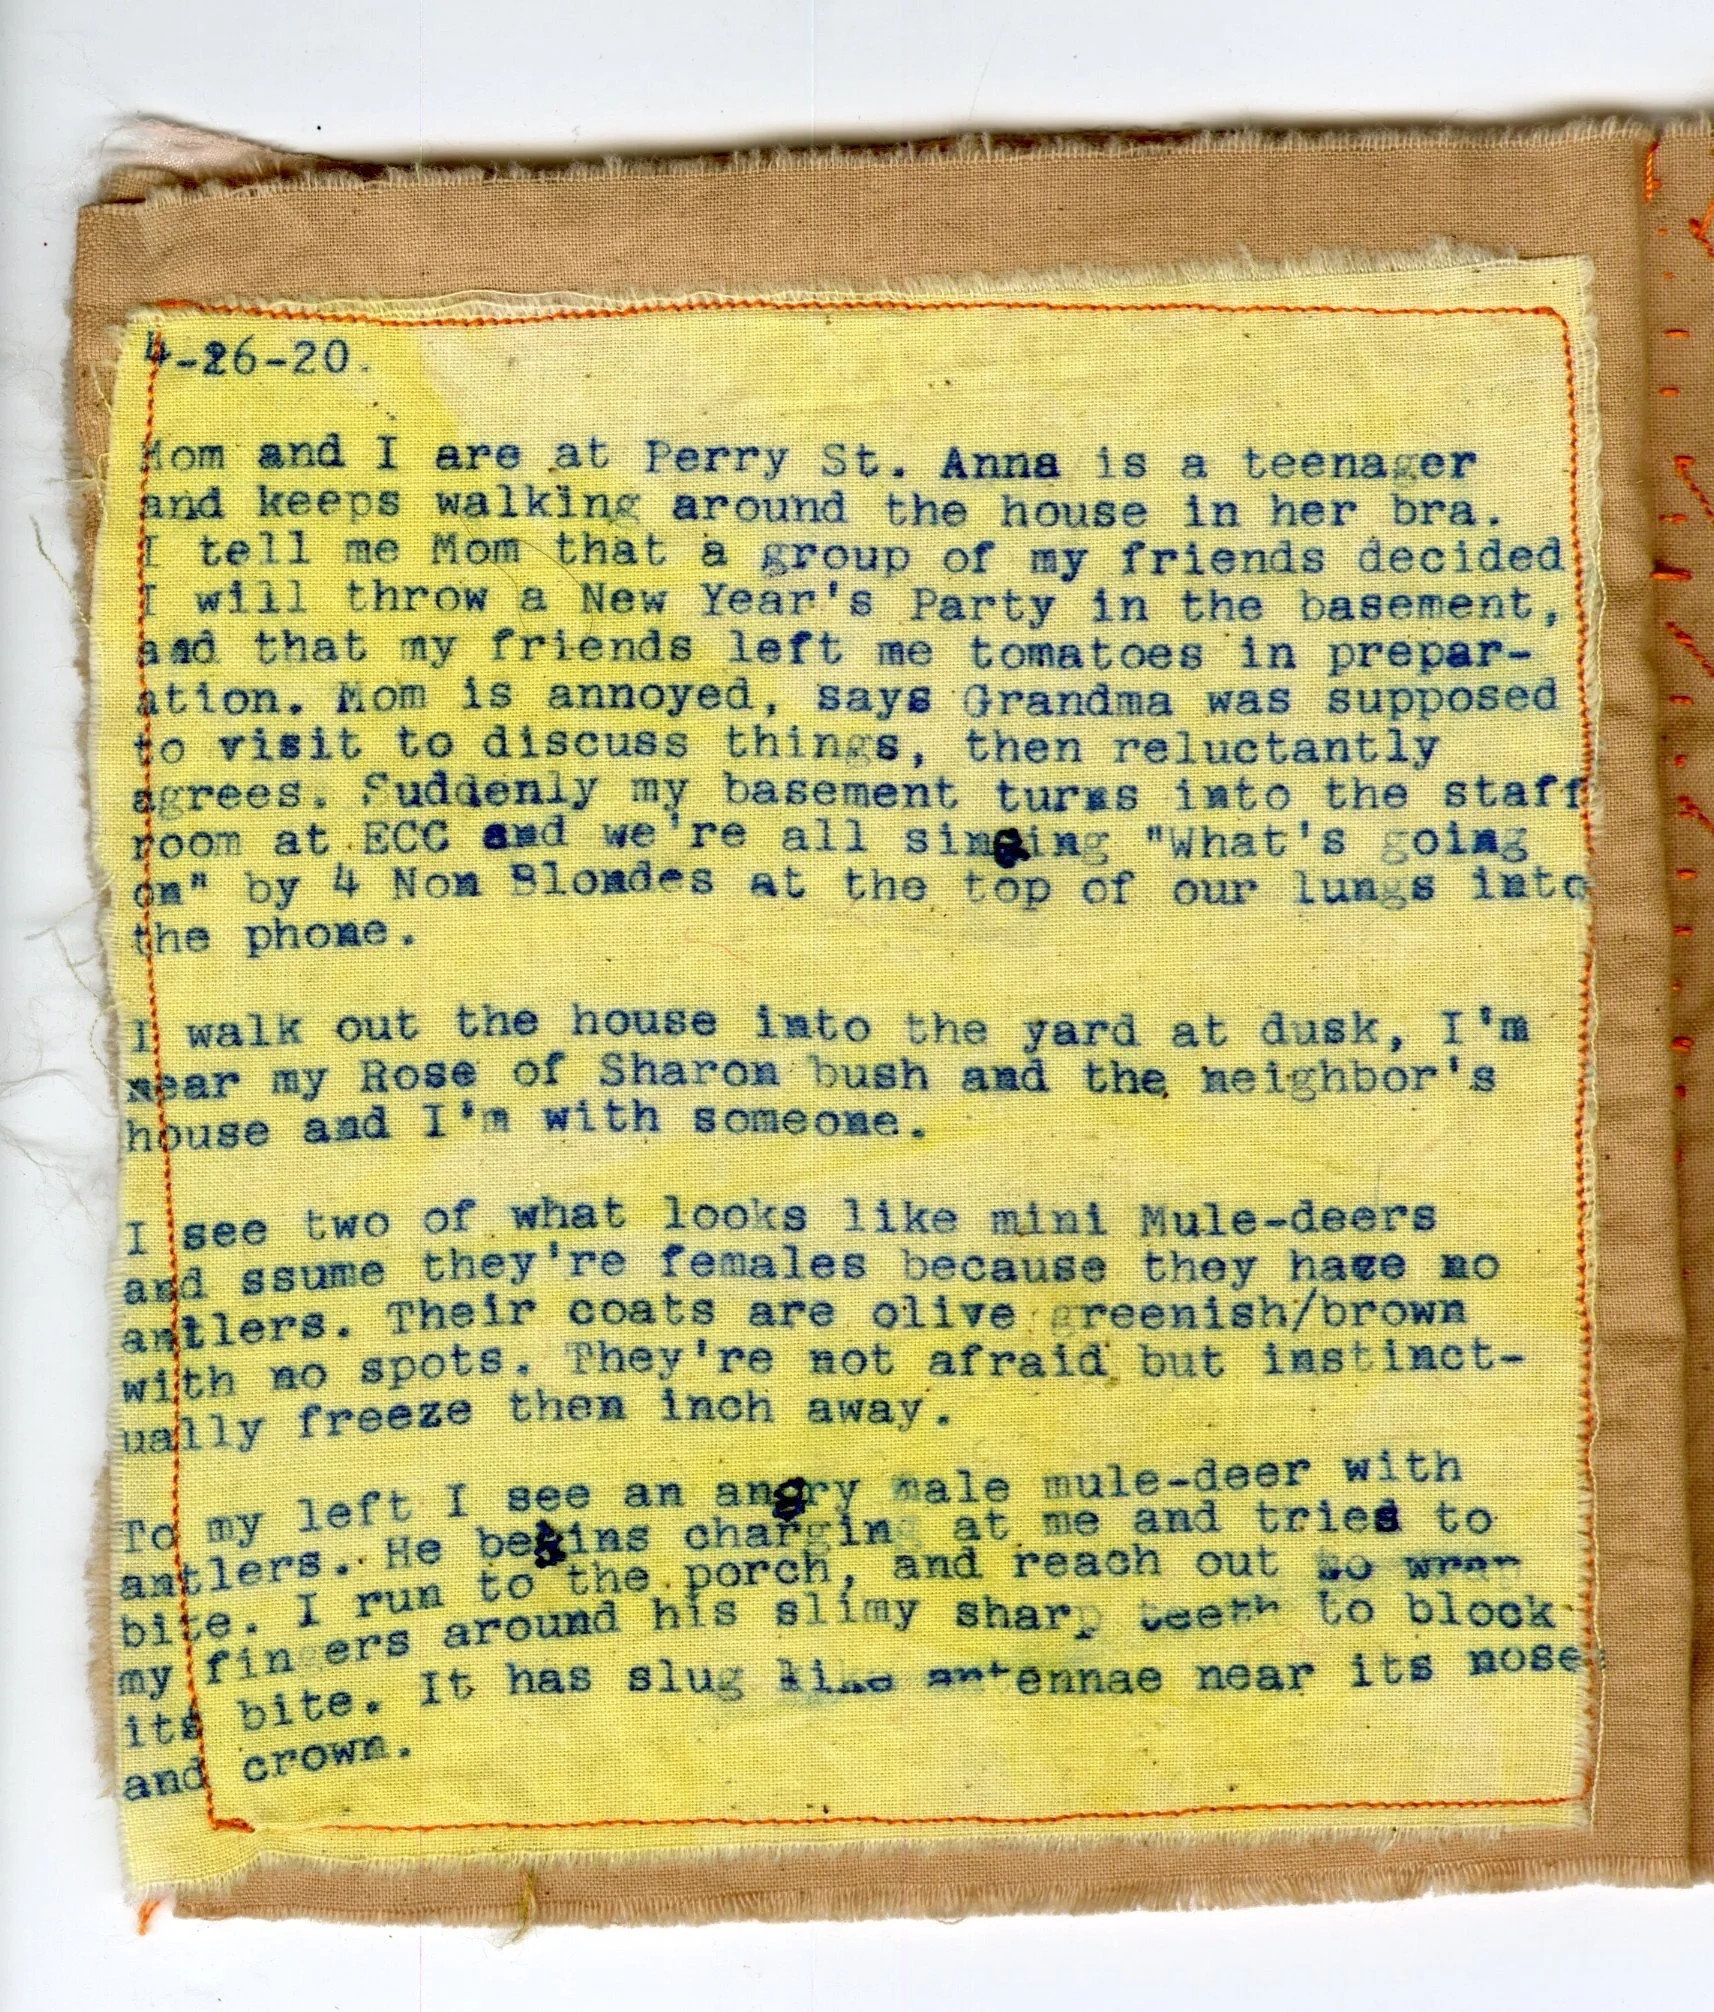 4-26-20.
Mom and I are at Perry St. Anna is a teenager
and keeps walking around the house in her bra.
I tell me Mom that a group of my friends decided
I will throw a New Year's Party in the basement,
and that my friends left me tomatoes in prepar-
ation. Mom is annoyed, says Grandma was supposed
to visit to discuss things, then reluctantly
agrees. Suddenly my basement turns into the staff
room at ECC and we're all singing "What's going
on" by 4 Non Blondes at the top of our lungs into
the phone.
I walk out the house into the yard at dusk, I'm
near my Rose of Sharon bush and the neighbor's
house and I'm with someone.
I see two of what looks like mini Mule-deers
and ssume they're females because they have no
antlers. Their coats are olive greenish/brown
with no spots. They're not afraid but instinct-
ually freeze then inch away.
To my left I see an angry male mule-deer with
antlers. He begins charging at me and tries to
bite. I run to the porch, and reach out to wrap
my fingers around his slimy sharp teeth to block
its bite. It has slug like antennae near its nose
and crown.